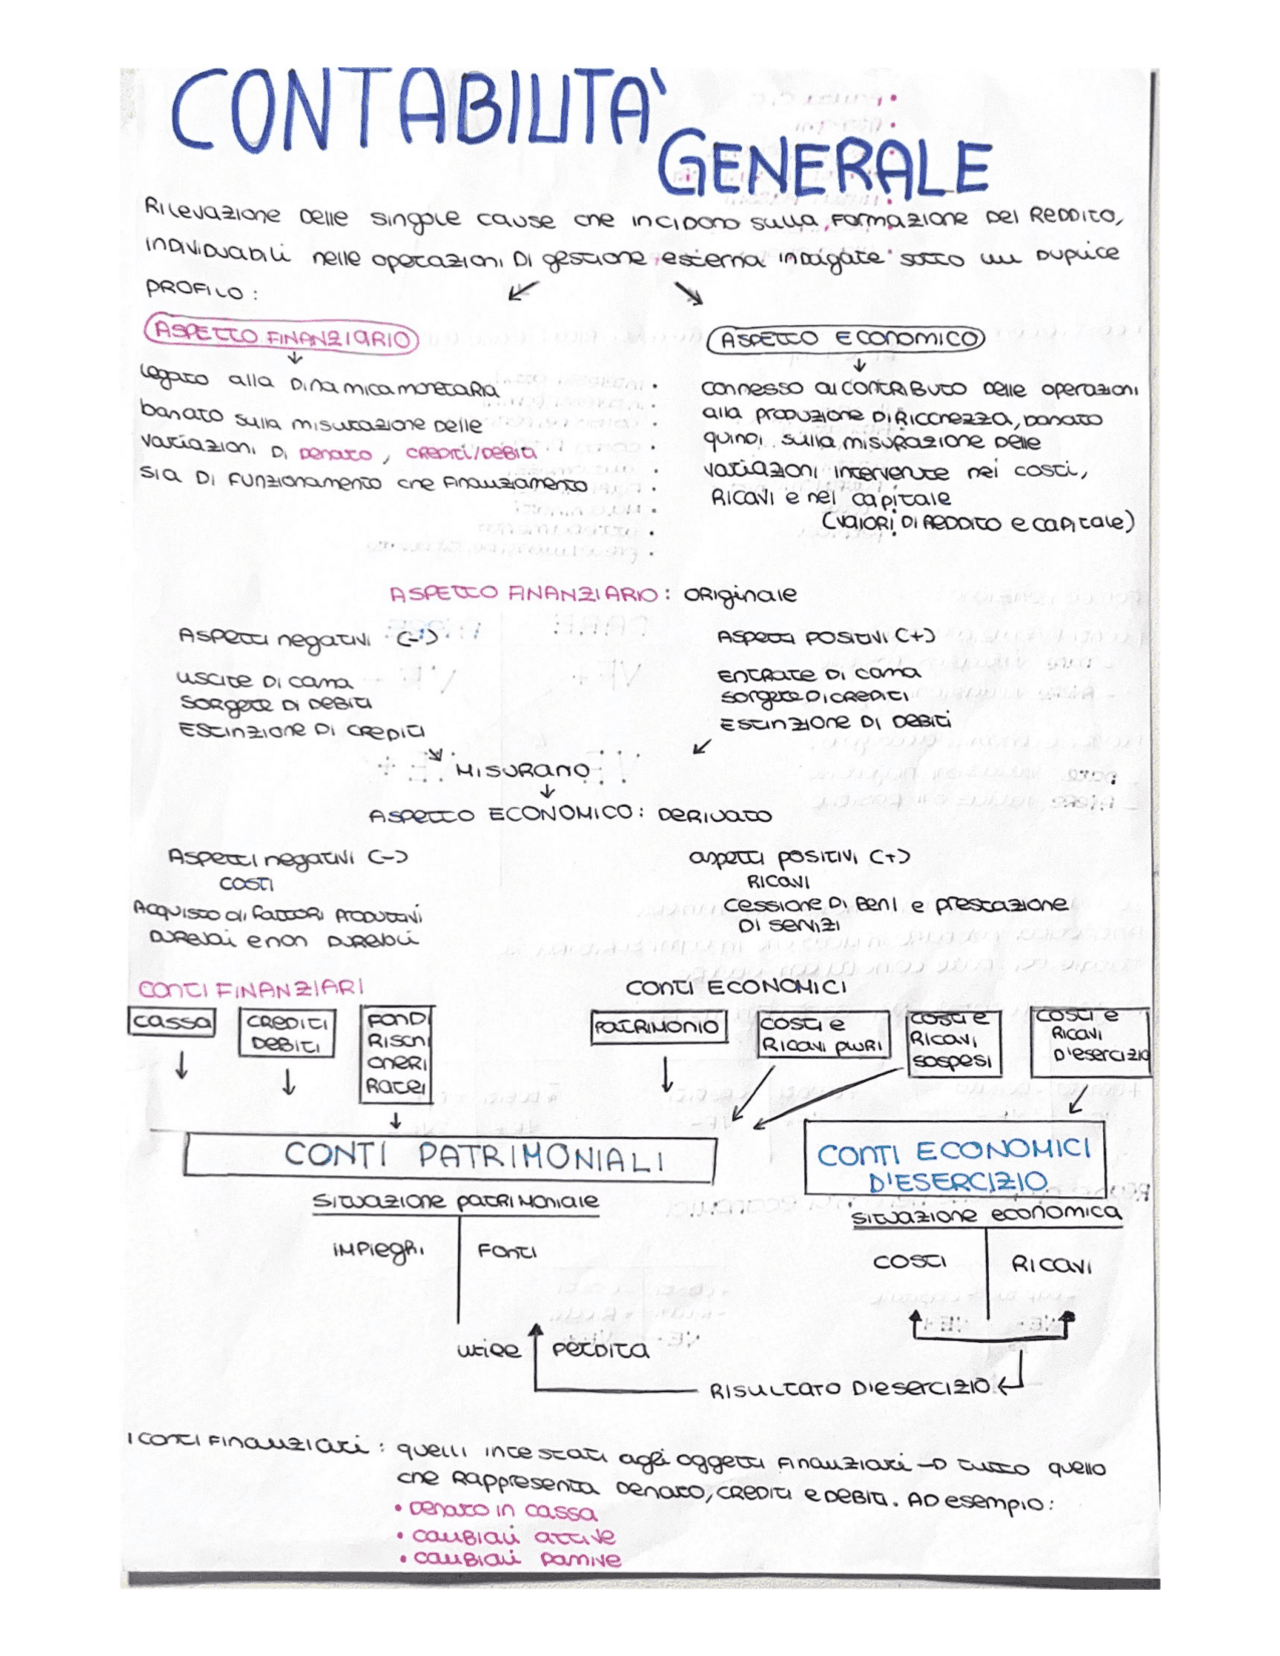 CONTABILITA'
GENERALE
Rilevazione delle singole cause che incidono sulla formazione del reddito,
individuabili nelle operazioni di gestione esterna indagate sotto un duplice
profilo:
ASPETTO FINANZIARIO
ASPETTO ECONOMICO
legato alla dinamica monetaria
basato sulla misurazione delle
variazioni di denaro, crediti/debiti
sia di funzionamento che finanziamento
connesso al contributo delle operazioni
alla produzione di ricchezza, basato
quindi sulla misurazione delle
variazioni intervenute nei costi,
ricavi e nel capitale
(valori di reddito e capitale)
ASPETTO FINANZIARIO: originale
Aspetti negativi (-)
uscite di cassa
sorgere di debiti
estinzione di crediti
Aspetti positivi (+)
entrate di cassa
sorgere di crediti
estinzione di debiti
MISURANO
ASPETTO ECONOMICO: DERIVATO
Aspetti negativi (-)
costi
Acquisto di fattori produttivi
durevoli e non durevoli
aspetti positivi (+)
Ricavi
cessione di beni e prestazione
di servizi
CONTI FINANZIARI
CONTI ECONOMICI
cassa
crediti
debiti
fondi
rischi
oneri
ratei
PATRIMONIO
costi e
ricavi pluri
costi e
ricavi
sospesi
costi e
ricavi
d'esercizio
CONTI PATRIMONIALI
CONTI ECONOMICI
D'ESERCIZIO
situazione patrimoniale
situazione economica
impieghi
fonti
costi
Ricavi
utile
perdita
RISULTATO D'ESERCIZIO
I conti finanziari: quelli intestati agli oggetti finanziari → tutto quello
che rappresenta denaro, crediti e debiti. Ad esempio:
• denaro in cassa
• cambiali attive
• cambiali passive